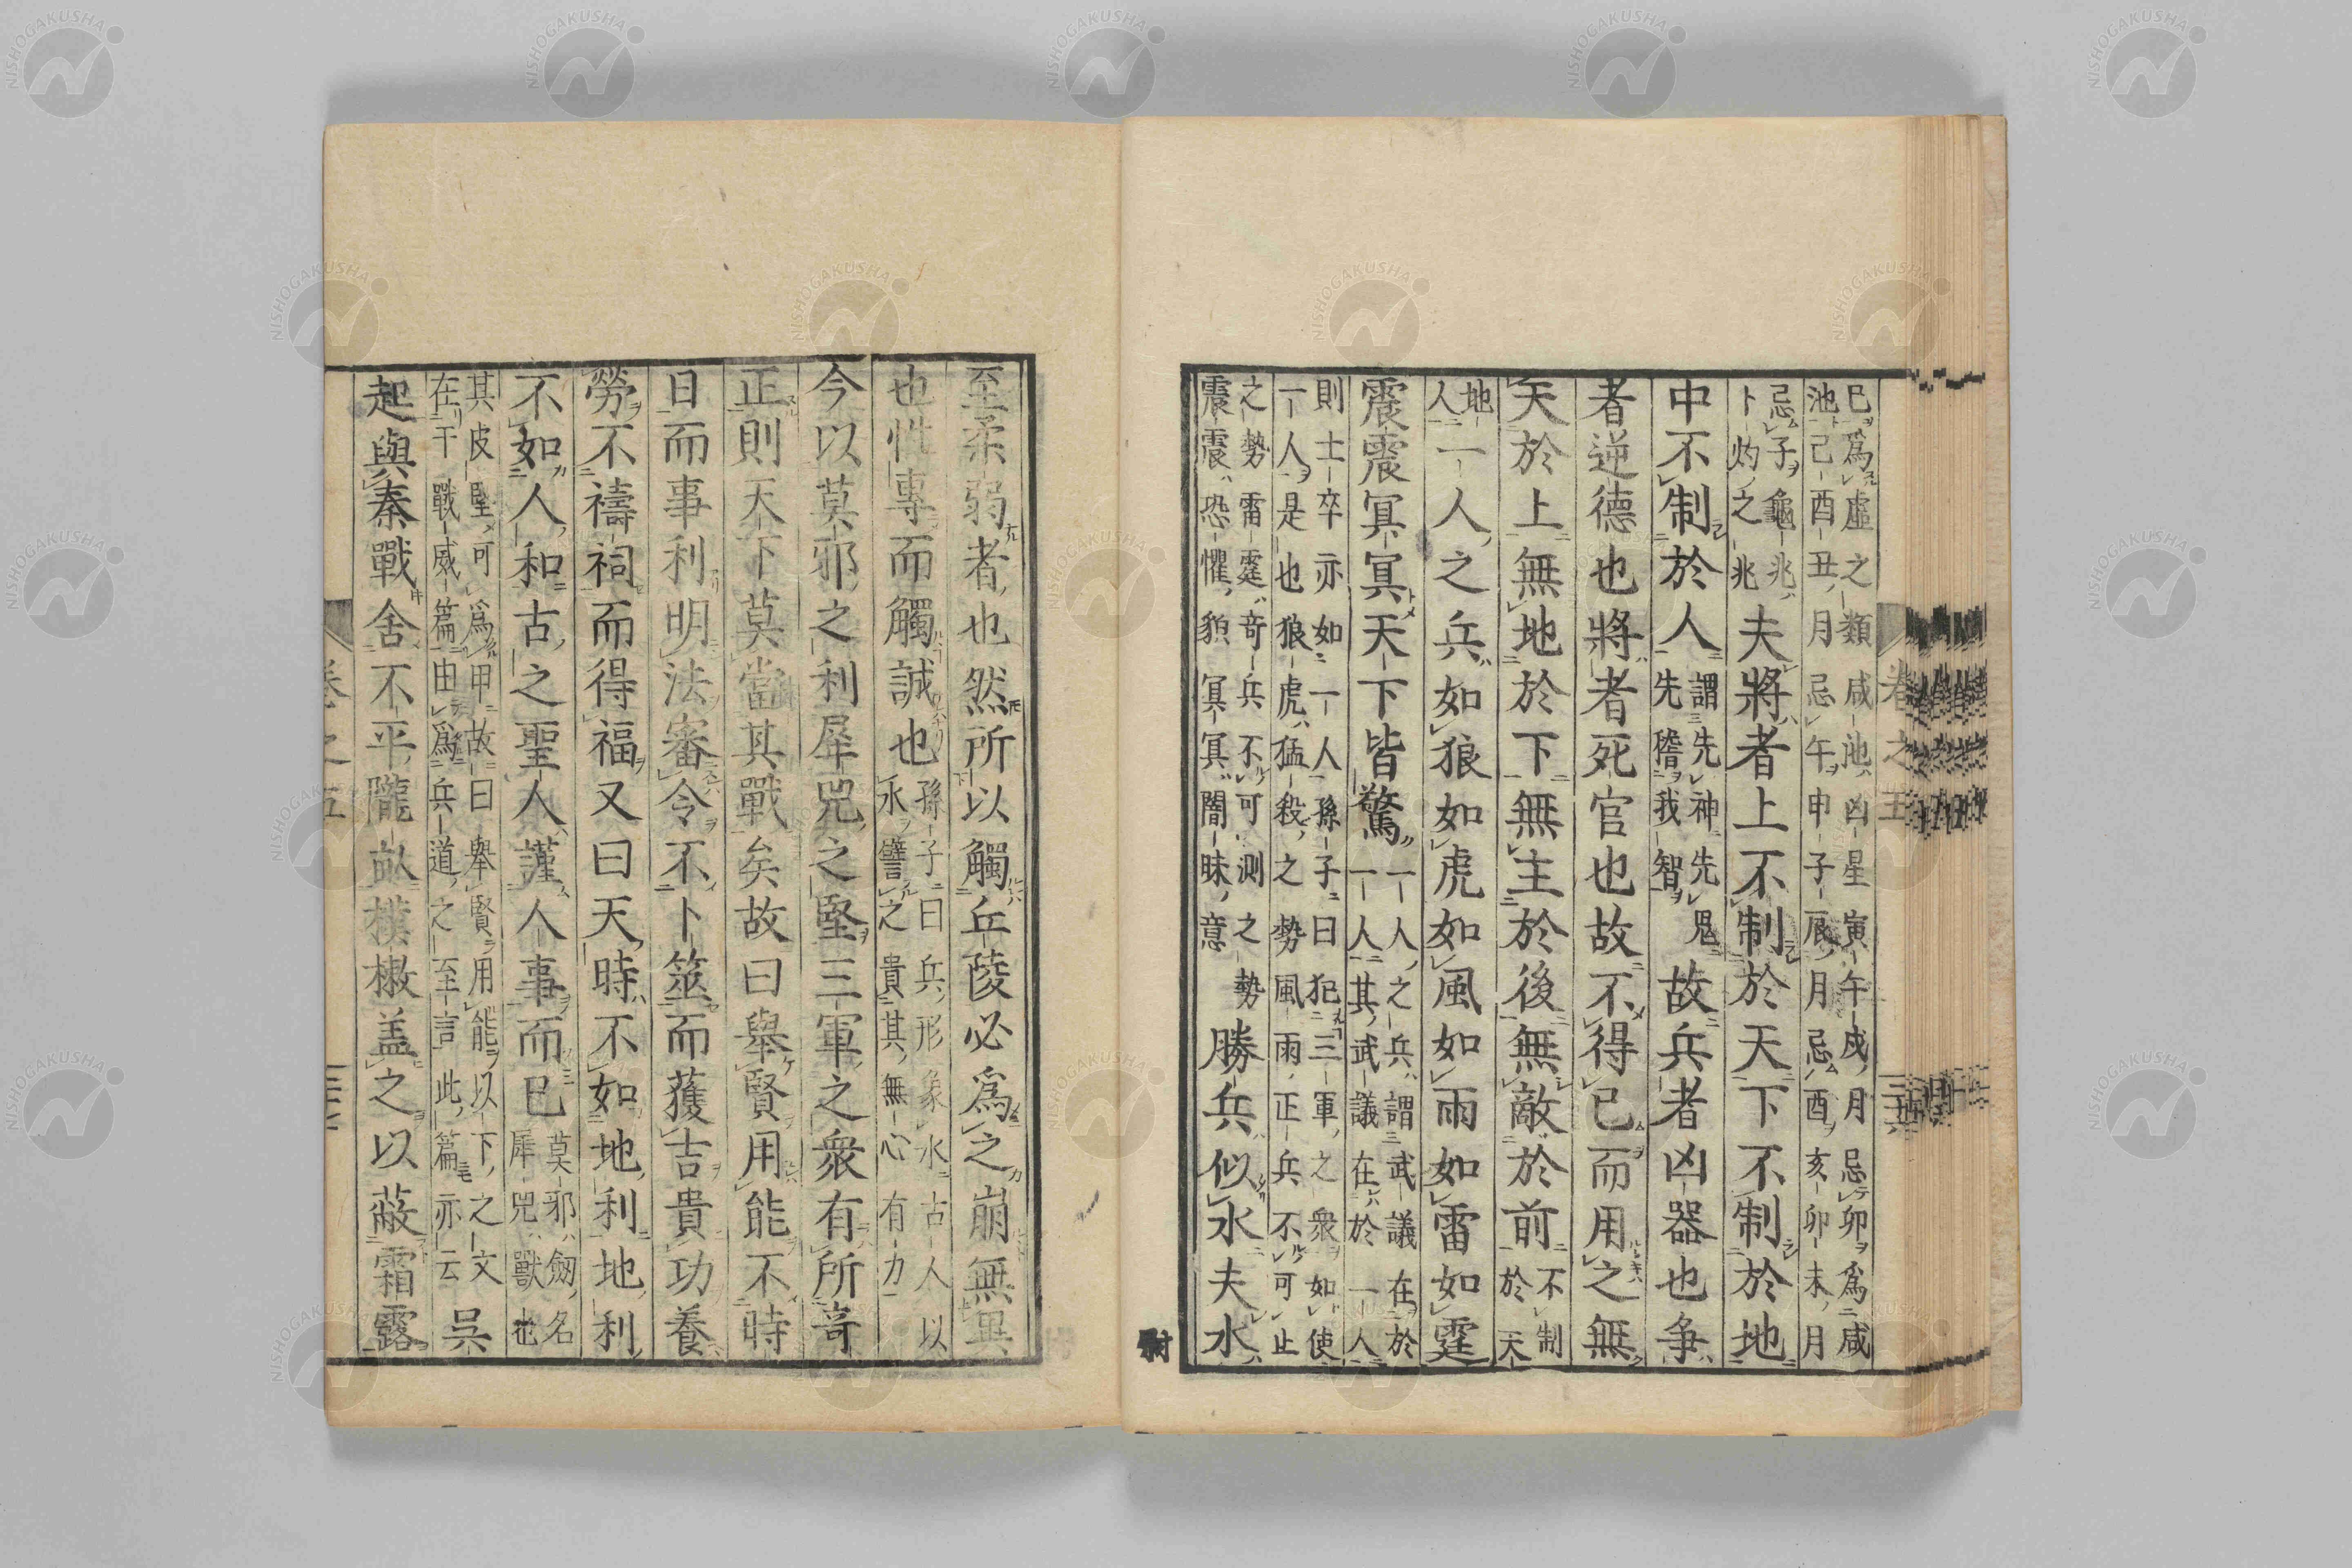 巳爲虛之類咸池凶星寅午戍月忌卯爲咸
池己酉丑月忌午申子辰月忌酉亥卯未月
忌子龜兆
卜灼之兆
夫將者上不制於天下不制於地
中不制於人
謂先神先鬼
先稽我智
故兵者凶器也争
者逆德也將者死官也故不得已而用之無
天於上無地於下無主於後無敵於前
不制
於天
地
人
一人之兵如狼如虎如風如雨如雷如霆
震震冥冥天下皆驚
一人之兵謂武議在於
一人其武議在於一人
則士卒亦如一人孫子曰犯三軍之衆如使
一人是也狼虎猛殺之勢風雨正兵不可止
之勢雷霆奇兵不可測之勢
震震恐懼貌冥冥闇昧意
勝兵似水夫水
至柔弱者也然所以觸丘陵必爲之崩無異
也性專而觸誠也
孫子曰兵形象水古人以
水譬之貴其無心有力
今以莫邪之利犀兕之堅三軍之衆有所奇
正則天下莫當其戰矣故曰舉賢用能不時
日而事利明法審令不卜筮而獲吉貴功養
勞不禱祠而得福又曰天時不如地利地利
不如人和古之聖人謹人事而已
莫邪劔名
犀兕獸也
其皮堅可爲甲故曰舉賢用能以下之文
在干戰威篇由爲兵道之至言此篇亦云
吳
起與秦戰舍不平隴畝樸樕盖之以蔽霜露
卷之五
NISHOGAKUSHA